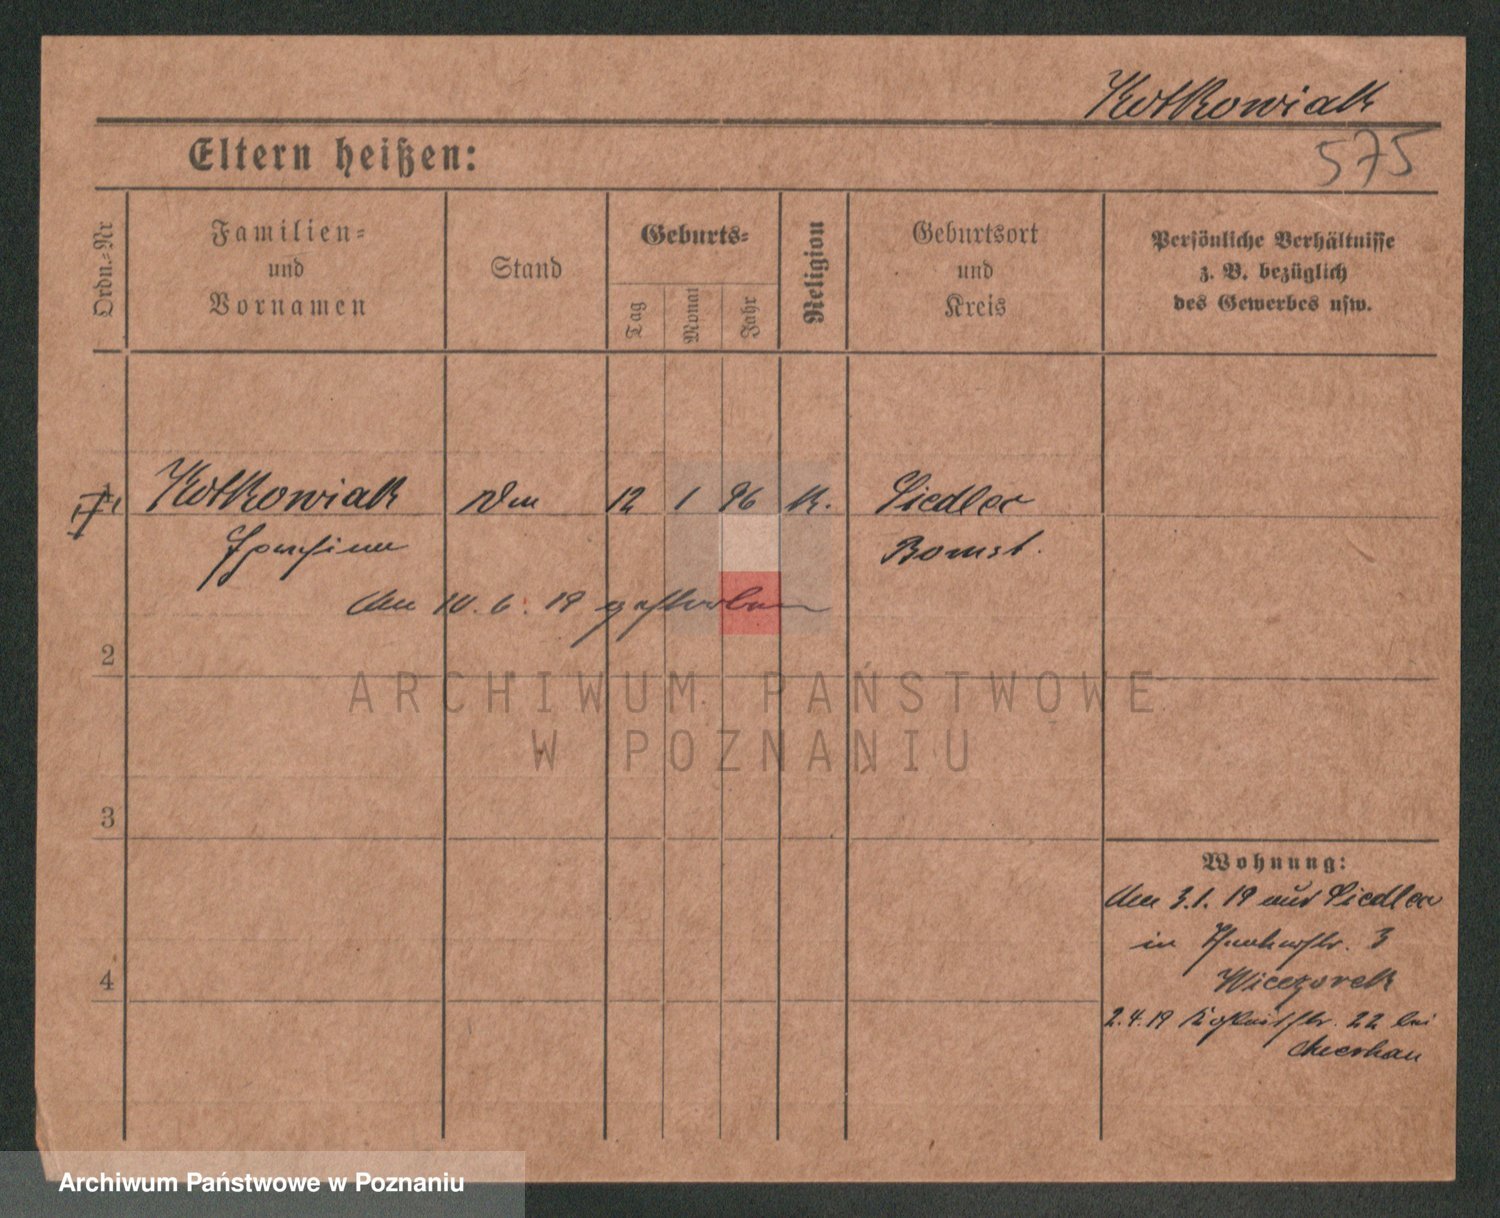 Kotkowiak
575
Eltern heißen:
Ordn.-Nr
Familien-
und
Vornamen
Stand
Geburts-
Tag
Monat
Jahr
Religion
Geburtsort
und
Kreis
Persönliche Verhältnisse
z. B. bezüglich
des Gewerbes usw.
1 Kotkowiak 12 1 96 K. Siedlec
Bomst.
Am 10. 6. 19 gestorben
2
ARCHIWUM PAŃSTWOWE
W POZNANIU
3
Wohnung:
Am 3.1. 19 aus Siedlec
in 3
4
Wieczorek
2.4.19 22 bei
Archiwum Państwowe w Poznaniu